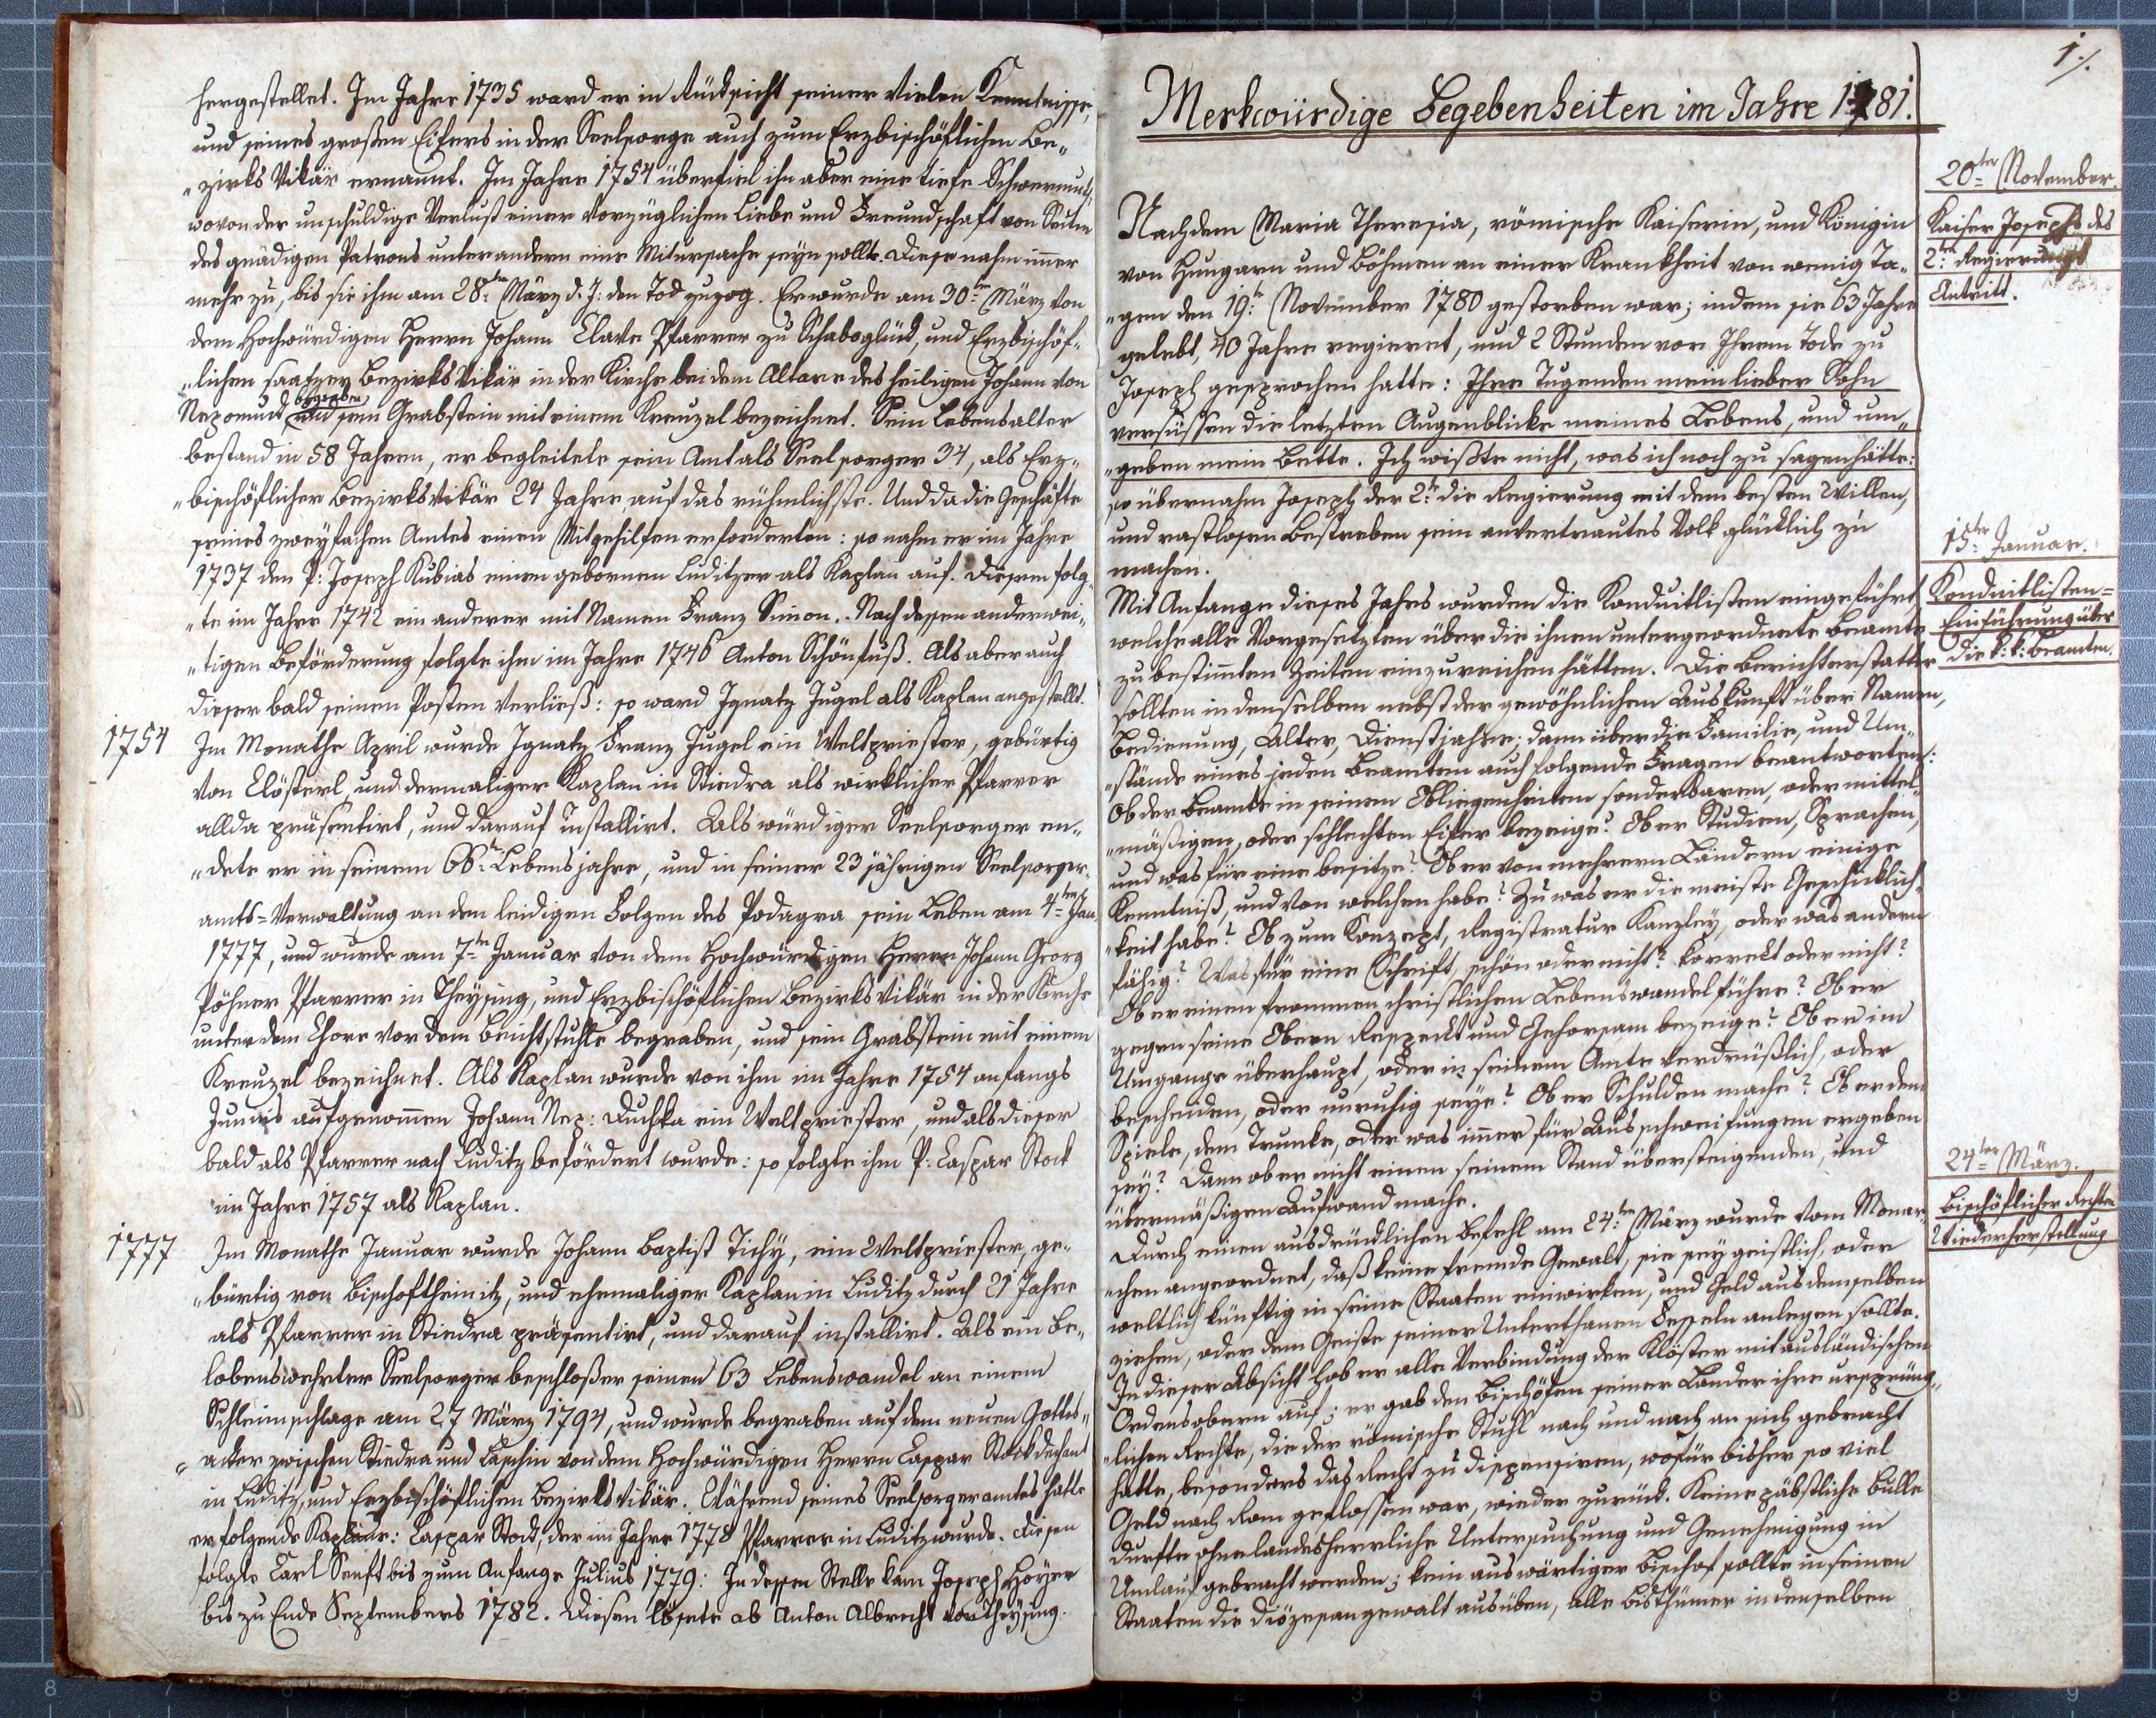 hergestellet. Im Jahre 1735 ward er in Rücksicht seiner vielen Kenntnisse,
und seines großen Eifers in der Seelsorge auch zum Erzbischöflichen Be„
„zirks Vikär ernannt. Im Jahre 1754 überfiel ihn aber eine tiefe Schwermuth,
wovon der unschuldige Verlust einer vorzüglichen Liebe und Freundschaft von Seiten
des gnädigen Patrons unter andern eine Mitursache seyn sollte. Diese nahm immer
mehr zu, bis sie ihm am 28ten März d. J: den Tod zuzog. Er wurde am 30ten März von
dem Hochwürdigen Herrn Johann Clave Pfarrer zu Schaboglück, und Erzbischöf„
„lichen saatzer Bezirks Vikär in der Kirche bei dem Altare des heiligen Johann von
Nepomuck begraben und sein Grabstein mit einem Kreuzel bezeichnet. Sein Lebensalter
bestand in 58 Jahren, er begleitete sein Amt als Seelsorger 34, als Erz„
„bischöflicher Bezirksvikär 24 Jahre auf das rühmlichste. Und da die Geschäfte
seines zweyfachen Amtes einen Mitgehilfen erforderten: so nahm er im Jahre
1737 den P: Joseph Kubias einen gebornen Luditzer als Kaplan auf. Diesem folg„
„te im Jahre 1742 ein anderer mit Namen Franz Simon. Nach dessen anderwei„
„tigen Beförderung folgte ihm im Jahre 1746 Anton Schönfuß. Als aber auch
dieser bald seinen Posten verließ: so ward Ignatz Jugel als Kaplan angestellt.
1754 Im Monathe April wurde Ignatz Franz Jugel ein Weltpriester, gebürtig
von Clösterl, und dermaliger Kaplan in Stiedra als wirklicher Pfarrer
allda präsentirt, und darauf installirt. Als würdiger Seelsorger en„
„dete er in seinem 66ten Lebensjahre, und in seiner 23 jährigen Seelsorger„
amts=Verwaltung an den leidigen Folgen des Podagra sein Leben am 4ten Jan.
1777, und wurde am 7ten Januar von dem Hochwürdigen Herrn Johann Georg
Pöhner Pfarrer in Theysing, und Erzbischöflichen Bezirks Vikär in der Kirche
unter dem Chore vor dem Beichtstuhle begraben, und sein Grabstein mit einem
Kreuzel bezeichnet. Als Kaplan wurde von ihm im Jahre 1754 anfangs
Junius aufgenommen Johann Nep: Duchka ein Weltpriester, und als dieser
bald als Pfarrer nach Luditz befördert wurde: so folgte ihm P: Caspar Stock
im Jahre 1757 als Kaplan.
1777 Im Monathe Januar wurde Johann Baptist Tichÿ, ein Weltpriester, ge„
„bürtig von Bischofteinitz, und ehemaliger Kaplan in Luditz durch 21 Jahre
als Pfarrer in Stiedra präsentirt, und darauf installirt. Als ein be„
lobenswehrter Seelsorger beschloßer seinen 63 Lebenswandel an einem
Schleimschlage am 27 März 1794, und wurde begraben auf dem neuen Gottes„
„acker zwischen Stiedra und Laschin von dem Hochwürdigen Herrn Caspar Stock Dechant
in Luditz, und Erzbischöflichen Bezirks Vikär. Während seines Seelsorgeramtes hatte
er folgende Kapläne: Caspar Stock, der im Jahre 1778 Pfarrer in Luditz wurde. Diesem
folgte Carl Senft bis zum Anfange Julius 1779: In dessen Stelle kam Joseph Hoÿer
bis zu Ende Septembers 1782. Diesen lösete ab Anton Albrecht von Theysing.
1./.
Merkwürdige Begebenheiten im Jahre 1781.
20ter November.
Kaiser Josephs des
2ten Regierungs
Antritt.
Nachdem Maria Theresia, römische Kaiserin, und Königin
von Hungarn und Böhmen an einer Krankheit von wenig Ta„
„gen den 19te November 1780 gestorben war; indem sie 63 Jahre
gelebt, 40 Jahre regieret, und 2 Stunden vor Ihrem Tode zu
Joseph gesprochen hatte: Ihre Tugenden mein lieber Sohn
versüssen die letzten Augenblicke meines Lebens, und um„
„geben mein Bette. Ich wißte nicht, was ich noch zu sagen hätte:
so übernahm Joseph der 2te die Regierung mit dem besten Willen,
und rastlosen Bestreben sein anvertrautes Volk glücklich zu
machen.
15ter Januar.
Konduitlisten=
Einführung über
die k: k: Beamten.
Mit Anfange dieses Jahrs wurden die Konduitlisten eingeführt,
welche alle Vorgesetzten über die ihnen untergeordnete Beamte
zu bestimmten Zeiten einzureichen hätten. Die Berichterstatter
sollten in denselben nebst der gewöhnlichen Auskunft über Namen,
Bedienung, Alter, Dienstjahre; dann über die Familie, und Um„
„stände eines jeden Beamten auch folgende Fragen beantworten:
Ob der Beamte in seinen Obliegenheiten sonderbaren, oder mittel„
„mäßigen, oder schlechten Eifer bezeige? Ob er Studien, Sprachen,
und was für eine besitze? Ob er von mehrern Ländern einige
Kenntniß, und von welchen habe? Zu was er die meiste Geschicklich„
„keit habe? Ob zum Konzept, Registratur Kanzley, oder was andern
fähig? Was für eine Schrift, schön oder nicht? korrekt oder nicht?
Ob er einen frommen christlichen Lebenswandel führe? Ob er
gegen seine Obern Respeckt und Gehorsam bezeige? Ob er im
Umgange überhaupt, oder in seinem Amte verdrüßlich, oder
bescheiden, oder unruhig seye? Ob er Schulden mache? Ob er dem
Spiele, dem Trunke, oder was immer für Ausschweifungen ergeben
sey? Dann ob er nicht einen seinem Stand übersteigenden, und
übermäßigen Aufwand mache.
24ter März.
Bischöflicher Rechten
Wiederherstellung
Durch einen ausdrücklichen Befehl am 24ten März wurde vom Monar„
„chen angeordnet, daß keine fremde Gewalt, sie sey geistlich, oder
weltlich künftig in seine Staaten einwirken, und Geld aus denselben
ziehen, oder dem Geiste seiner Unterthanen Fesseln anlegen sollte.
In dieser Absicht hob er alle Verbindung der Klöster mit ausländischen
Ordensobern auf; er gab den Bischöfen seiner Länder ihre ursprüng„
„lichen Rechte, die der römische Stuhl nach und nach an sich gebracht
hatte, besonders das Recht zu dispensiren, wofür bisher so viel
Geld nach Rom geflossen war, wieder zurück. Keine päbstliche Bulle
durfte ohne landesherrliche Untersuchung und Genehmigung in
Umlauf gebracht werden; kein auswärtiger Bischof sollte in seinen
Staaten die Diözesangewalt ausüben, alle Bisthümer in denselben